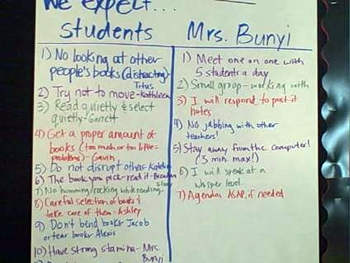 We expect...
Students
1) No looking at other
people's books (distracting)
Titus
2) Try not to move - Kathleen
3) Read quietly & select
quietly - Garrett
4) Get a proper amount of
books (too much or too little =
problems) - Gavin
5) Do not disrupt others
6) The book you pick - read it -
7) No humming/ while reading -
8) Careful selection of books &
take care of them - Ashley
9) Don't bend books Jacob
or tear books Alexis
10) Have strong stamina - Mrs.
Bunyi
Mrs. Bunyi
1) Meet one on one with
5 students a day
2) Small group - working with
3) I will respond to post-it
notes
4) No jabbing with other
teachers!
5) Stay away from the computer!
(3 min max!)
6) I will speak at a
whisper level
7) Agendas ASAP, if needed